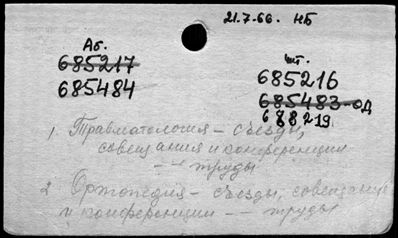 21.7.66. НБ
Аб.
685217
685484
чт.
685216
685483-од
688219
1. Травматология - съезды,
совещания и конференции
-- труды
2 Ортопедия - съезды, совещания
и конференции -- труды